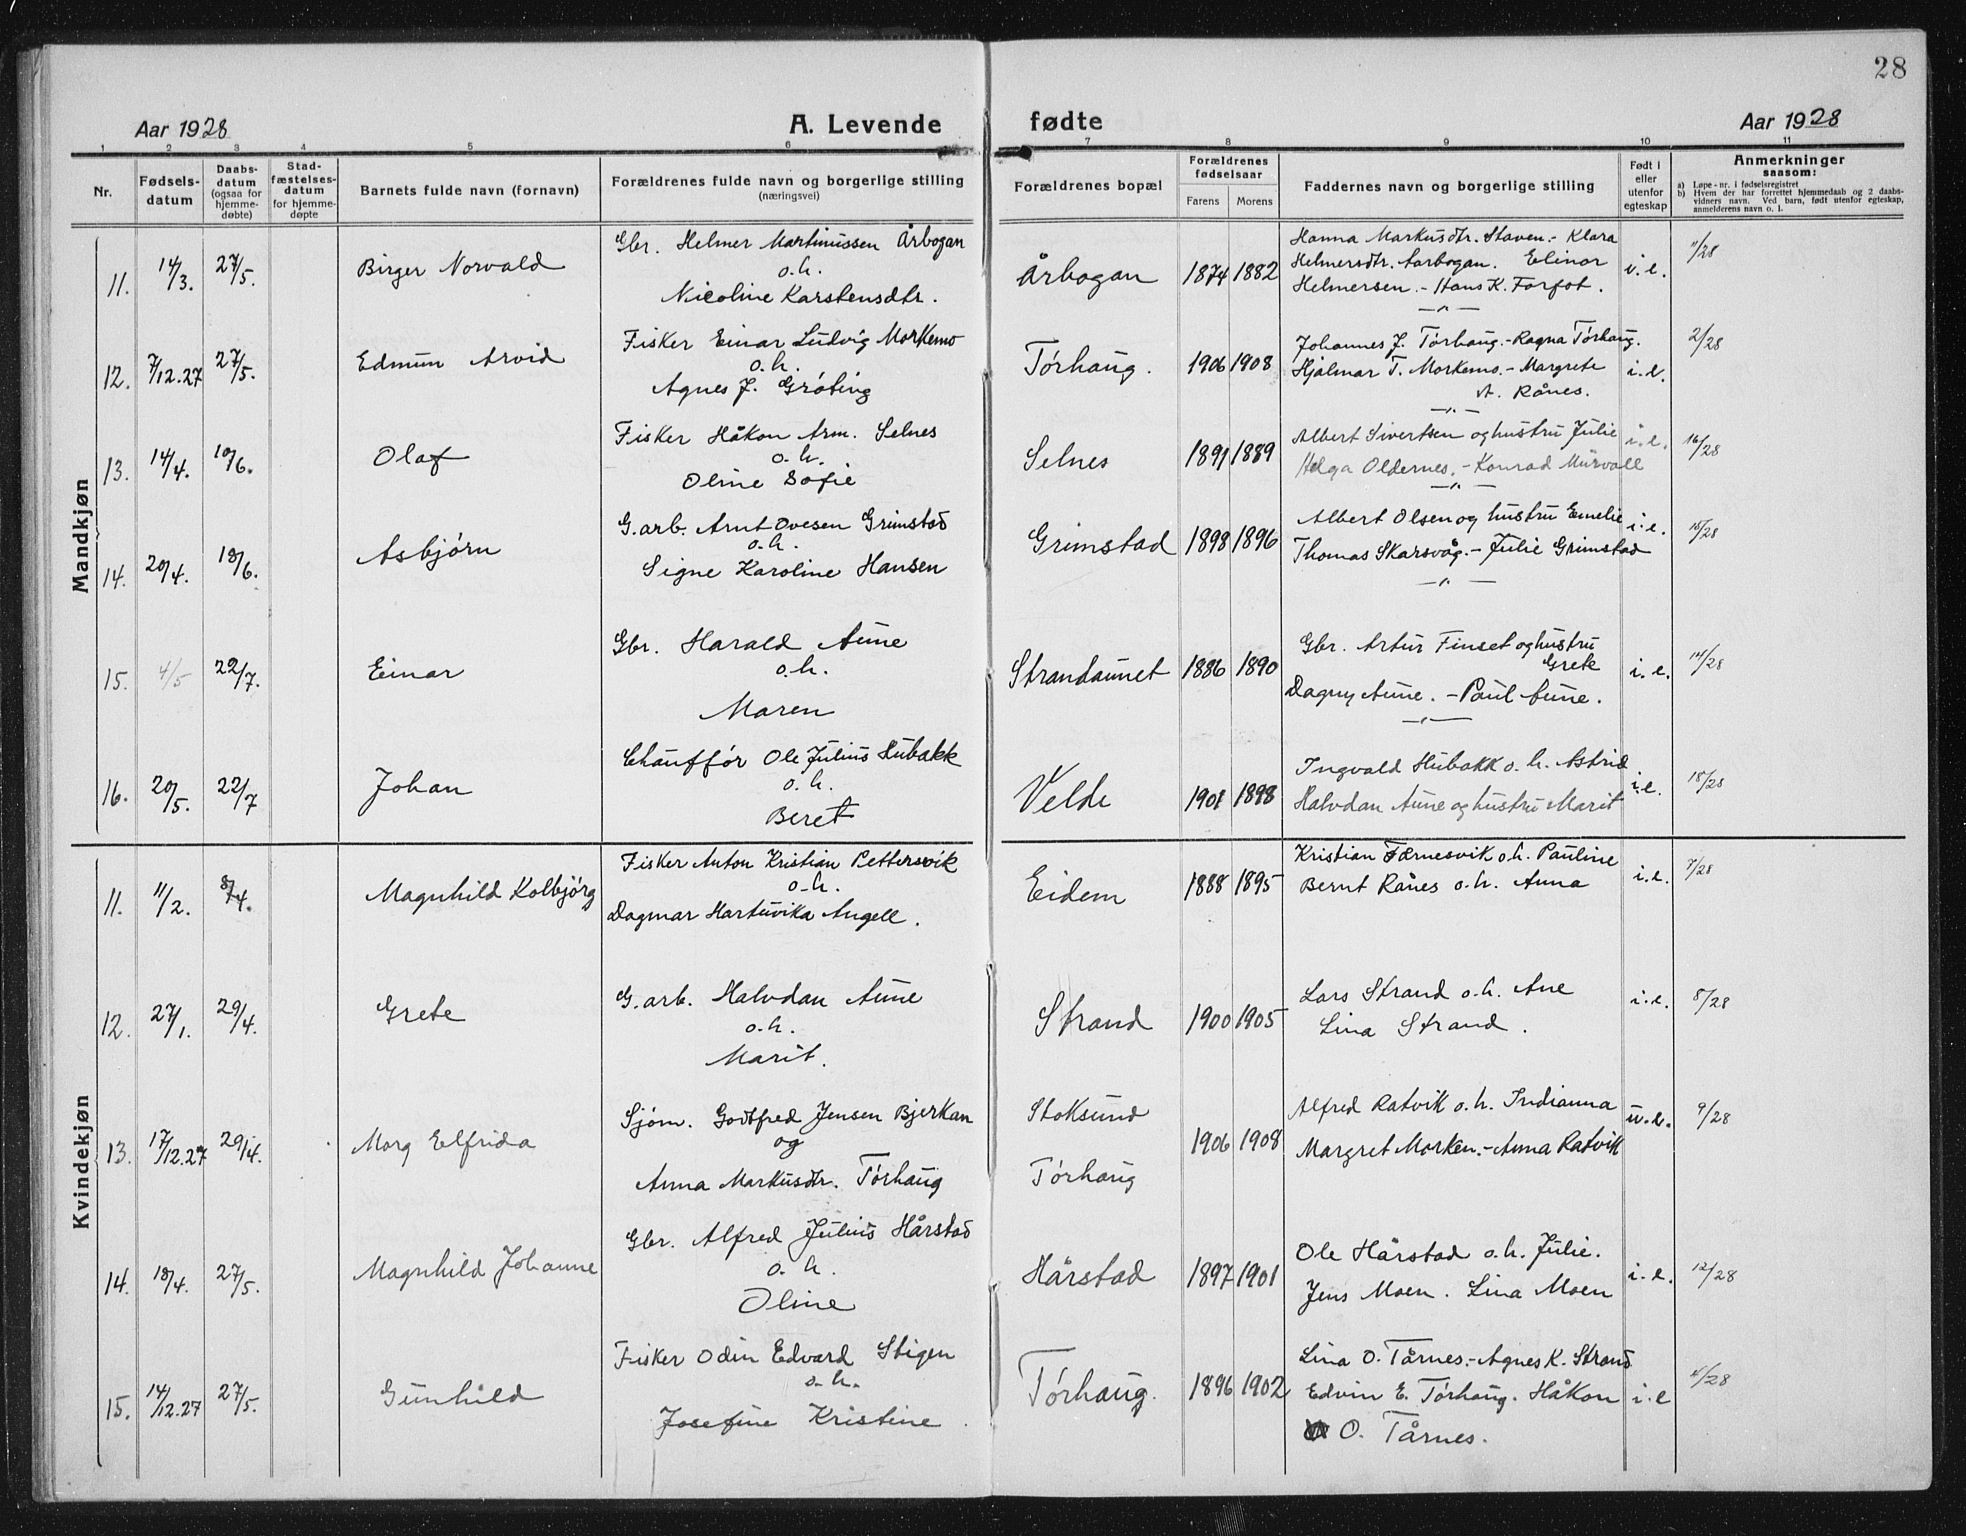 28
Aar 1928
A. Levende
fødte
Aar 1928
1 2 3 4 5 6 7 8 9 10 11
Nr.
Fødsels-
datum
Daabs-
datum
(ogsaa for
hjemme-
døbte)
Stad-
fæstelses-
datum
for hjemme-
døpte
Barnets fulde navn (fornavn)
Forældrenes fulde navn og borgerlige stilling
(næringsvei)
Forældrenes bopæl
Forældrenes
fødselsaar
Farens
Morens
Faddernes navn og borgerlige stilling
Født i
eller
utenfor
egteskap
Anmerkninger
saasom:
a) Løpe-nr. i fødselsregistret
b) Hvem der har forrettet hjemmedaab og 2 daabs-
vidners navn. Ved barn, født utenfor egteskap,
anmelderens navn o. l.
Mandkjøn
11. 14/3. 27/5. Birger Norvald
Gbr. Helmer Martinussen Årbogan
o.h.
Nicoline Karstensdtr.
Årbogan 1874 1882
Hanna Markusdtr. Staven.- Klara
Helmersdtr. Aarbogan. Elinor
Helmersen.- Hans K. Forfot.
i.e. 11/28
-"-
12. 7/12.27 27/5. Edmun Arvid
Fisker Einar Ludvig Morkemo
o.h.
Agnes J. Grøting
Tørhaug. 1906 1908
Johannes J. Tørhaug.- Ragna Tørhaug.
Hjalmar T. Morkemo.- Margrete
A. Rånes.
i.e. 2/28
-"-
13. 14/4. 10/6. Olaf
Fisker Håkon Arm. Selnes
o.h.
Oline Sofie
Selnes 1891 1889
Albert Sivertsen og hustru Julie
Helga Oldernes.- Konrad Murvoll
i.e. 16/28
-"-
14. 20/4. 10/6. Asbjørn
G.arb. Arnt Ovesen Grimstad
o.h.
Signe Karoline Hansen
Grimstad 1898 1896
Albert Olsen og hustru Emelie
Thomas Skarsvåg.- Julie Grimstad
i.e. 15/28
-"-
15. 4/5 22/7. Einar
Gbr. Harald Aune
o.h.
Maren
Strandaunet 1886 1890
Gbr. Artur Finset og hustru
Grete
Dagny Aune.- Paul Aune.
i.e. 14/28
-"-
16. 20/5. 22/7 Johan
Chauffør Ole Julius Hubakk
o.h.
Beret
Velde 1901 1898
Ingvald Hubakk o.h. Astrid
Halvdan Aune og hustru Marit
i.e. 18/28
Kvindekjøn
11. 11/2. 8/4. Magnhild Kolbjørg
Fisker Anton Kristian Pettersvik
o.h.
Dagmar Hartuvika Angell.
Eidem 1888 1895
Kristian Færnesvik o.h. Pauline
Bernt Rånes o.h. Anna
i.e. 7/28
12. 27/1. 29/4. Grete
G.arb. Halvdan Aune
o.h.
Marit.
Strand 1900 1905
Lars Strand o.h. Ane
Lina Strand.
i.e. 8/28
13. 17/12.27 29/4. Morg Elfrida
Sjøm. Godtfred Jensen Bjerkan
og
Anna Markusdtr. Tørhaug
Stoksund
Tørhaug
1906 1908
Alfred Ratvik o.h. Indianna
Margret Morken.- Anna Ratvik
u.e. 9/28
14. 18/4. 27/5. Magnhild Johanne
Gbr. Alfred Julius Hårstad
o.h.
Oline
Hårstad 1897 1901
Ole Hårstad o.h. Julie.
Jens Moen. Lina Moen
i.e. 12/28
15. 14/12.27 27/5. Gunhild
Fisker Odin Edvard Stigen
o.h.
Josefine Kristine.
Tørhaug. 1896 1902
Lina O. Tårnes.- Agnes K. Strand
Edvin E. Tørhaug. Håkon
O. Tårnes.
i.e